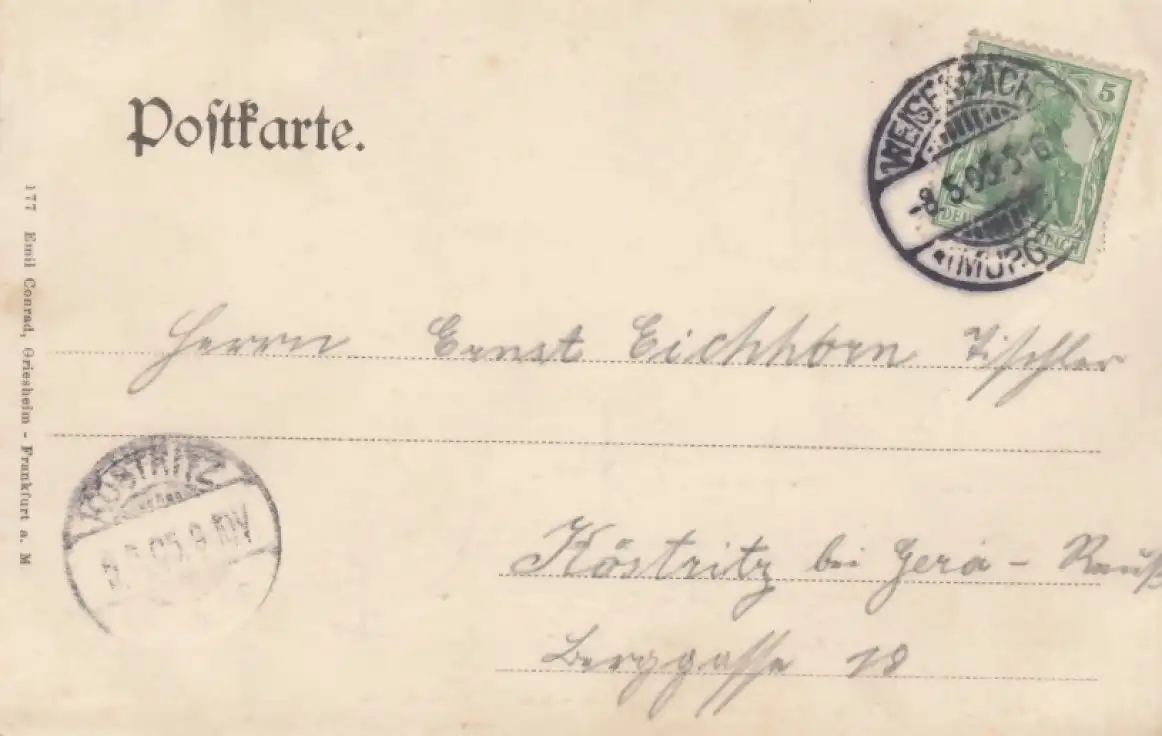 Postkarte.
5
WEISENBACH
8.5.05.5-6
DEUTSCHES REICH
(MURG)
177 Emil Conrad, Griesheim - Frankfurt a. M
Herrn Ernst Eichhorn Tischler
KÖSTRITZ
.05.9-10V
Köstritz bei Gera - Reuß
Berggasse 18